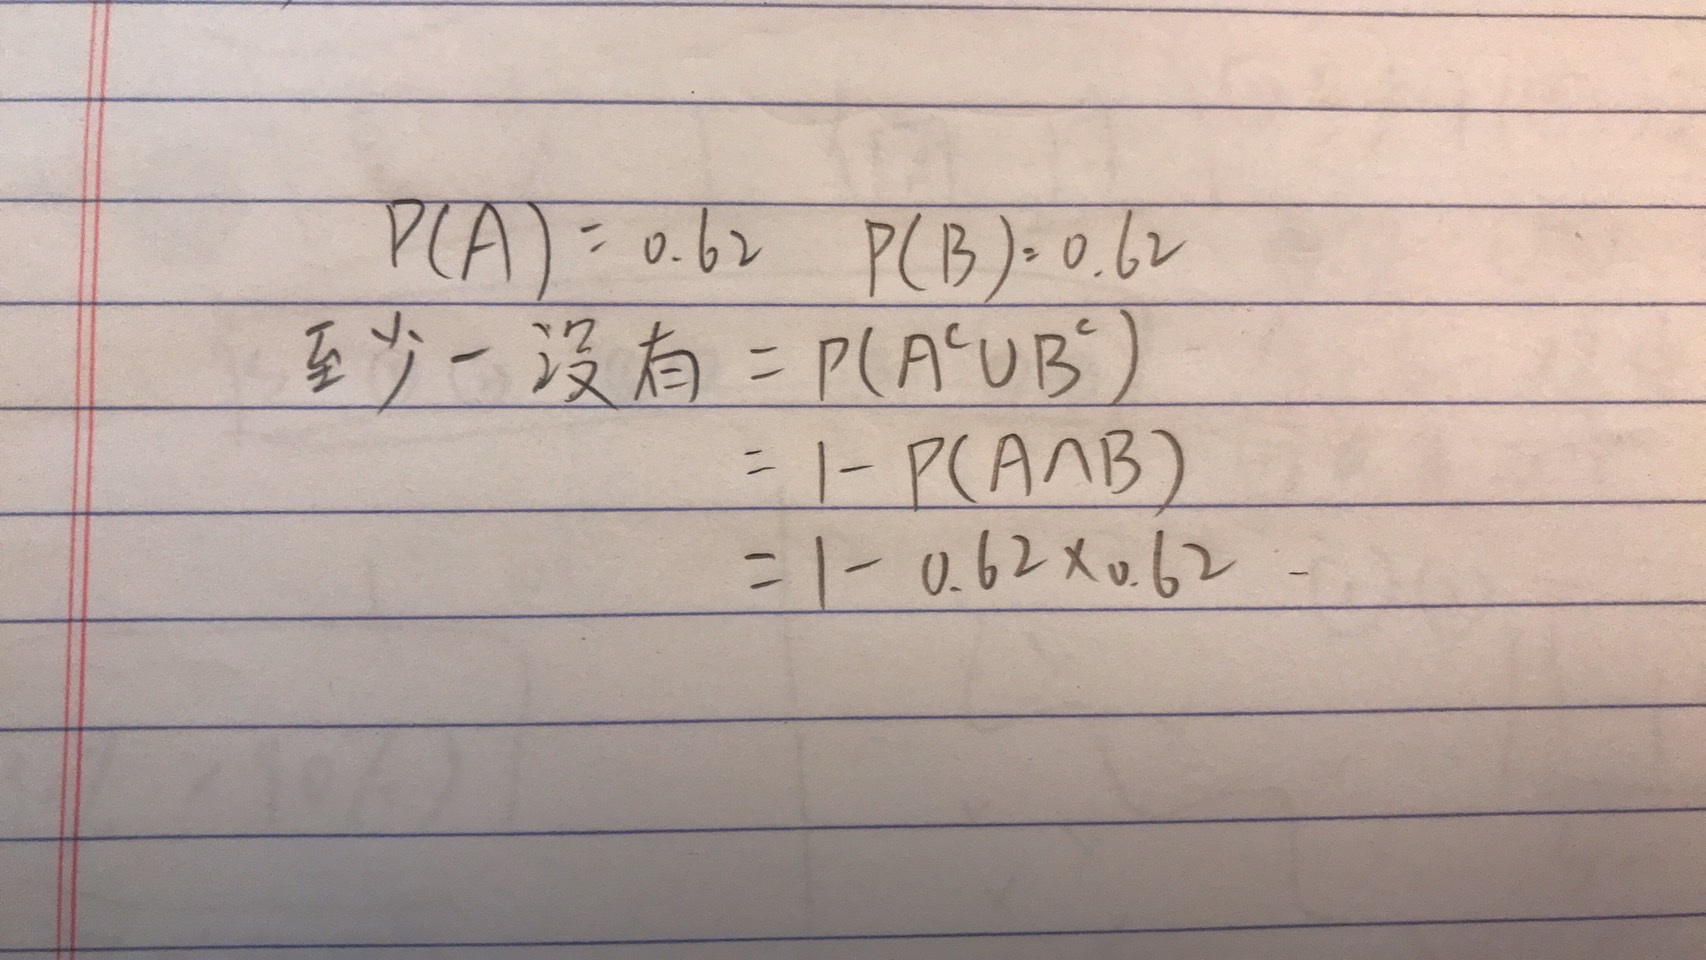 P(A) = 0.62 P(B) = 0.62
至少一没有 = P(Aᶜ∪Bᶜ)
= 1 - P(A∩B)
= 1 - 0.62×0.62 -